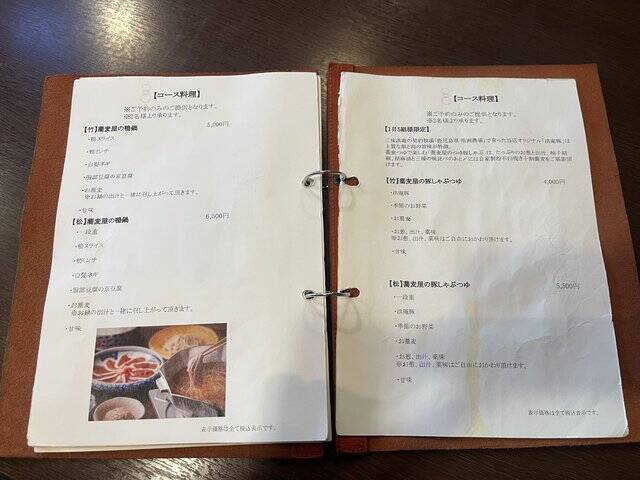 【コース料理】
※ご予約のみのご提供となります。
※2名様より承ります。
【竹】蕎麦屋の鴨鍋 5,000円
・鴨スライス
・鴨ミンチ
・白髪ネギ
・服部豆腐の京豆腐
・お蕎麦
※お鍋の出汁と一緒に召し上がって頂きます。
・甘味
【松】蕎麦屋の鴨鍋 6,500円
・一段重
・鴨スライス
・鴨ミンチ
・白髪ネギ
・服部豆腐の京豆腐
・お蕎麦
※お鍋の出汁と一緒に召し上がって頂きます。
・甘味
表示価格は全て税込表示です。
【コース料理】
※ご予約のみのご提供となります。
※2名様より承ります。
【1日5組様限定】
上質な脂と肉の旨味が特徴。
【竹】蕎麦屋の豚しゃぶつゆ 4,000円
・洪庵豚
・季節のお野菜
・お蕎麦
・お葱、出汁、薬味
※お葱、出汁、薬味はご自由におかわり頂けます。
・甘味
【松】蕎麦屋の豚しゃぶつゆ 5,500円
・一段重
・洪庵豚
・季節のお野菜
・お蕎麦
・お葱、出汁、薬味
※お葱、出汁、薬味はご自由におかわり頂けます。
・甘味
表示価格は全て税込表示です。